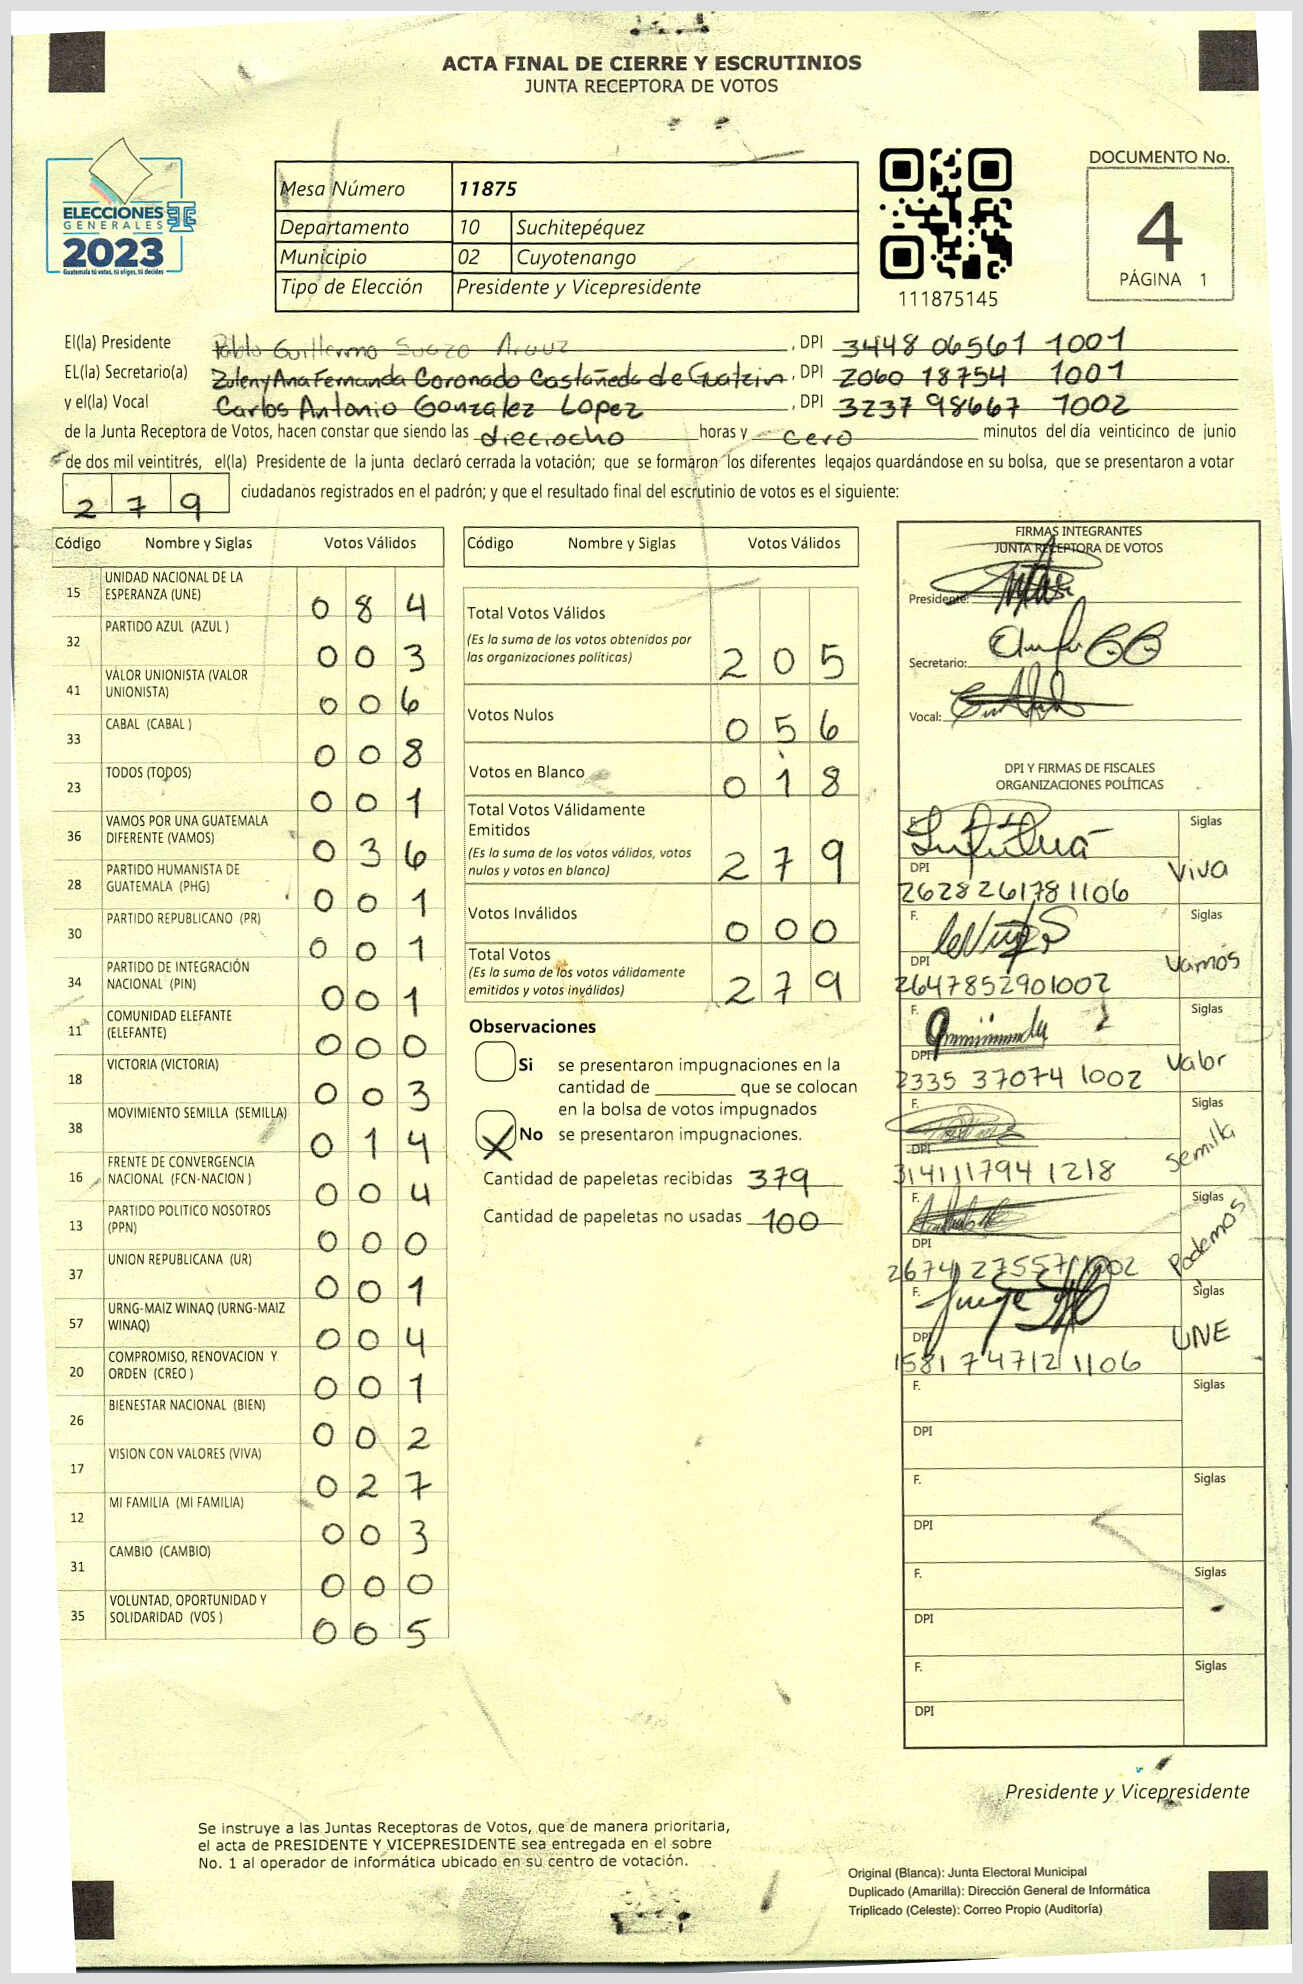 ACTA FINAL DE CIERRE Y ESCRUTINIOS
JUNTA RECEPTORA DE VOTOS
ELECCIONES
GENERALES
2023
Guatemala tú votas, tú eliges, tú decides
Mesa Número 11875
Departamento 10 Suchitepéquez
Municipio 02 Cuyotenango
Tipo de Elección Presidente y Vicepresidente
111875145
DOCUMENTO No.
4
PÁGINA 1
El(la) Presidente Pablo Guillermo Suazo Arauz, DPI 3448 06561 1001
EL(la) Secretario(a) Zuleny Ana Fernanda Coronado Castañeda de Guatzin, DPI 2060 18754 1001
y el(la) Vocal Carlos Antonio Gonzalez Lopez, DPI 3237 98667 1002
de la Junta Receptora de Votos, hacen constar que siendo las dieciocho horas y cero minutos del día veinticinco de junio
de dos mil veintitrés, el(la) Presidente de la junta declaró cerrada la votación; que se formaron los diferentes legajos guardándose en su bolsa, que se presentaron a votar
279 ciudadanos registrados en el padrón; y que el resultado final del escrutinio de votos es el siguiente:
Código Nombre y Siglas Votos Válidos
15 UNIDAD NACIONAL DE LA
ESPERANZA (UNE) 084
32 PARTIDO AZUL (AZUL ) 003
41 VALOR UNIONISTA (VALOR
UNIONISTA) 006
33 CABAL (CABAL ) 008
23 TODOS (TODOS) 001
36 VAMOS POR UNA GUATEMALA
DIFERENTE (VAMOS) 036
28 PARTIDO HUMANISTA DE
GUATEMALA (PHG) 001
30 PARTIDO REPUBLICANO (PR) 001
34 PARTIDO DE INTEGRACIÓN
NACIONAL (PIN) 001
11 COMUNIDAD ELEFANTE
(ELEFANTE) 000
18 VICTORIA (VICTORIA) 003
38 MOVIMIENTO SEMILLA (SEMILLA) 014
16 FRENTE DE CONVERGENCIA
NACIONAL (FCN-NACION ) 004
13 PARTIDO POLITICO NOSOTROS
(PPN) 000
37 UNION REPUBLICANA (UR) 001
57 URNG-MAIZ WINAQ (URNG-MAIZ
WINAQ) 004
20 COMPROMISO, RENOVACION Y
ORDEN (CREO ) 001
26 BIENESTAR NACIONAL (BIEN) 002
17 VISION CON VALORES (VIVA) 027
12 MI FAMILIA (MI FAMILIA) 003
31 CAMBIO (CAMBIO) 000
35 VOLUNTAD, OPORTUNIDAD Y
SOLIDARIDAD (VOS ) 005
Código Nombre y Siglas Votos Válidos
Total Votos Válidos
(Es la suma de los votos obtenidos por
las organizaciones políticas) 205
Votos Nulos 056
Votos en Blanco 018
Total Votos Válidamente
Emitidos
(Es la suma de los votos válidos, votos
nulos y votos en blanco) 279
Votos Inválidos 000
Total Votos
(Es la suma de los votos válidamente
emitidos y votos inválidos) 279
Observaciones
Si se presentaron impugnaciones en la
cantidad de ________ que se colocan
en la bolsa de votos impugnados
X No se presentaron impugnaciones.
Cantidad de papeletas recibidas 379
Cantidad de papeletas no usadas 100
FIRMAS INTEGRANTES
JUNTA RECEPTORA DE VOTOS
Presidente:
Secretario:
Vocal:
DPI Y FIRMAS DE FISCALES
ORGANIZACIONES POLÍTICAS
F. Siglas
DPI Viva
2628261781106
F. Siglas
DPI Vamos
2647852901002
F. Siglas
DPI Valor
2335 37074 1002
F. Siglas
DPI Semilla
314111794 1218
F. Siglas
DPI Podemos
2674 27557 1002
F. Siglas
DPI UNE
1581 74712 1106
F. Siglas
DPI
F. Siglas
DPI
F. Siglas
DPI
F. Siglas
DPI
Presidente y Vicepresidente
Se instruye a las Juntas Receptoras de Votos, que de manera prioritaria,
el acta de PRESIDENTE Y VICEPRESIDENTE sea entregada en el sobre
No. 1 al operador de informática ubicado en su centro de votación.
Original (Blanca): Junta Electoral Municipal
Duplicado (Amarilla): Dirección General de Informática
Triplicado (Celeste): Correo Propio (Auditoría)